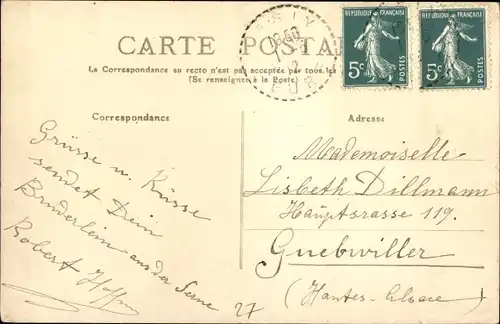 CARTE POSTALE
La Correspondance au recto n'est pas acceptée par tous les
(Se renseigner à la Poste)
REPUBLIQUE FRANÇAISE
5c
POSTES
REPUBLIQUE FRANÇAISE
5c
POSTES
Correspondance
Grüsse u. Küsse
sendet Dein
Brüderlein aus der Ferne
Robert
27
Adresse
Mademoiselle
Lisbeth Dillmann
Hauptsrasse 119.
Guebwiller
(Hautes-Alsace)